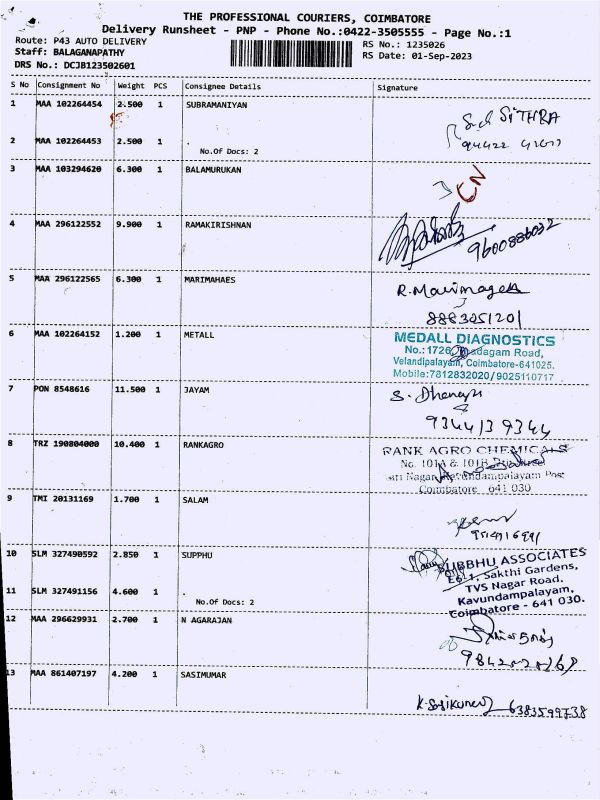 THE PROFESSIONAL COURIERS, COIMBATORE
Delivery Runsheet - PNP - Phone No.:0422-3505555 - Page No.:1
Route: P43 AUTO DELIVERY
RS No.: 1235026
Staff: BALAGANAPATHY
RS Date: 01-Sep-2023
DRS No.: DCJB123502601
S No Consignment No Weight PCS Consignee Details Signature
1 MAA 102264454 2.500 1 SUBRAMANIYAN
SITHRA
2 MAA 102264453 2.500 1 .
No.Of Docs: 2
3 MAA 103294620 6.300 1 BALAMURUKAN
CN
4 MAA 296122552 9.900 1 RAMAKIRISHNAN
9600886032
5 MAA 296122565 6.300 1 MARIMAHAES
R. Marimagesh
8883051201
6 MAA 102264152 1.200 1 METALL
MEDALL DIAGNOSTICS
No.:1726, Road,
Velandipalayam, Coimbatore-641025.
Mobile:7812832020/9025110717
7 PON 8548616 11.500 1 JAYAM
S. Dhanam
9344139344
8 TRZ 190804000 10.400 1 RANKAGRO
RANK AGRO CHEMICALS
No. 101A & 101B
Nagar, Kavundampalayam Post
Coimbatore 641 030
9 TMI 20131169 1.700 1 SALAM
10 SLM 327490592 2.850 1 SUPPHU
SUBBHU ASSOCIATES
Sakthi Gardens,
TVS Nagar Road.
Kavundampalayam,
Coimbatore - 641 030.
11 SLM 327491156 4.600 1 .
No.Of Docs: 2
12 MAA 296629931 2.700 1 N AGARAJAN
13 MAA 861407197 4.200 1 SASIMUMAR
K. Sasikumar 6383599738